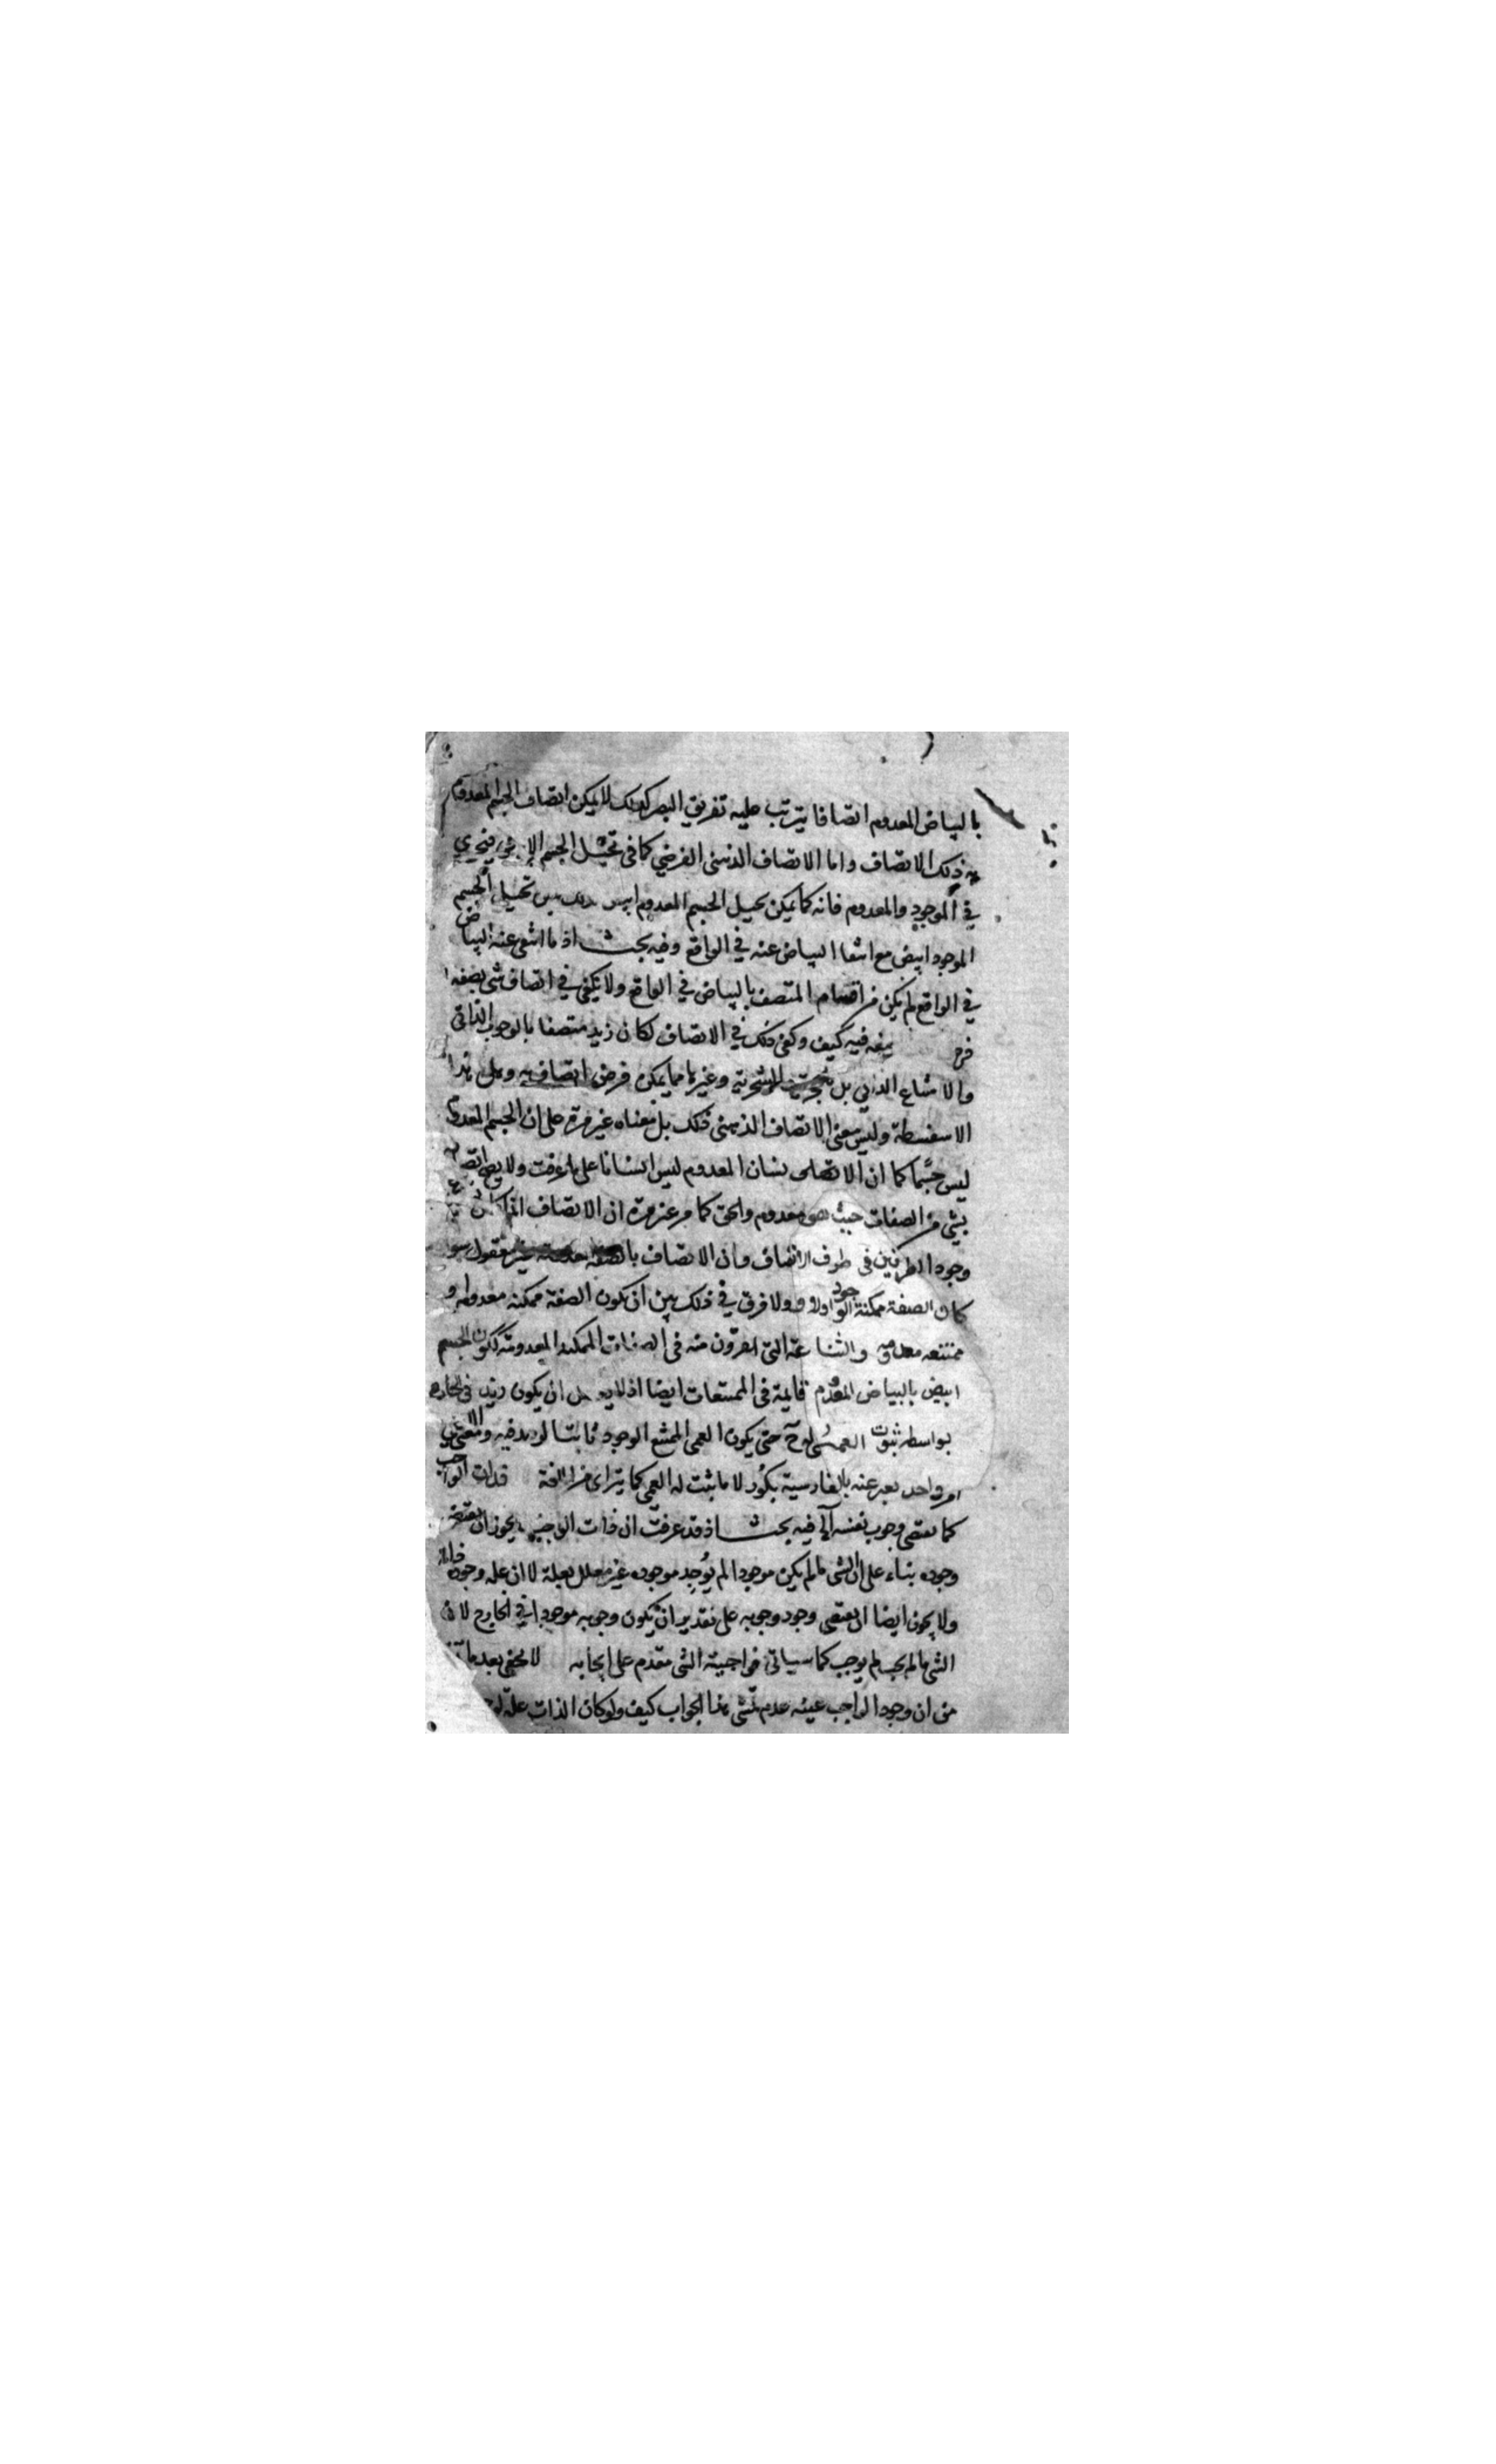 بالبياض المعدوم اتصافا يترتب عليه تفريق البصر كذلك لا يمكن اتصاف الجسم المعدوم
به ذلك الاتصاف واما الاتصاف الذهني الفرضي كما في تخيل الجسم الابيض فيجري
في الموجود والمعدوم فانه كما يمكن تخيل الجسم المعدوم ابيض كذلك يمكن تخيل الجسم
الموجود ابيض مع انتفا البياض عنه في الواقع وفيه بحث اذ ما انتفى عنه البياض
في الواقع لم يكن من اقسام المتصف بالبياض في الواقع ولا يكفي في اتصاف شي بصفة
فرض فيه كيف وكفى ذلك في الاتصاف لكان زيد متصفا بالوجوب الذاتي
والامتناع الذاتي بل وغيرها مما يمكن فرض اتصافه به وهل هذا
الا سفسطة وليس معنى الاتصاف الذهني ذلك بل معناه غير مرة على ان الجسم المعدوم
ليس جسما كما ان الانسان المعدوم ليس انسانا على ما عرفت ولا يصح اتصافه
بشي من الصفات حيث هو معدوم والحق كما مر غير مرة ان الاتصاف
وجود الطرفين في ظرف الاتصاف وان الاتصاف بالصفة غير معقول سوا
كان الصفة ممكنة الوجود اولا ولا فرق في ذلك بين ان يكون الصفة ممكنة معدومة او
ممتنعة معدومة والشناعة التي تفرون منه في الصفات الممكنة المعدومة ككون الجسم
ابيض بالبياض المعدوم قايمة في الممتنعات ايضا اذ ان يكون زيد في الخارج
بواسطة ثبوت العمى له ح حتى يكون العمى الممتنع الوجود ثابتا لزيد فيه والاعمى
امر واحد يعبر عنه بالفارسية بكور لا ما ثبت له العمى كما يتراى من اللغة فذات الواجب
كما يقتضي وجوب نفسه آلى فيه بحث اذ قد عرفت ان ذات الواجب يجوز ان يقتضي
وجوده بناء على ان الشي ما لم يكن موجودا لم يوجد موجوده غير معلل بعلة لا ان علة وجوده ذاته
ولا يجوز ايضا ان يقتضي وجود وجوبه على تقدير ان يكون وجوبه موجودا في الخارج لان
الشي ما لم يجب لم يوجب كما سياتي فواجبية الشي مقدم على ايجابه لا يخفى بعد ما
من ان وجود الواجب عينه عدم تمشي هذا الجواب كيف ولو كان الذات علة